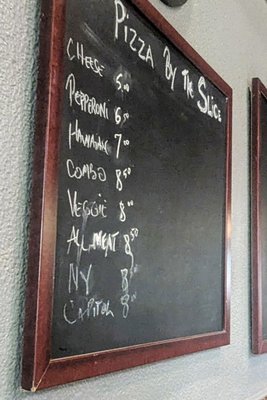 Pizza By The Slice
CHEESE 5.00
PEPPERONI 6.50
HAWAIIAN 7.00
COMBO 8.50
VEGGIE 8.00
ALL MEAT 8.50
NY 8.50
CAPITOL 8.00